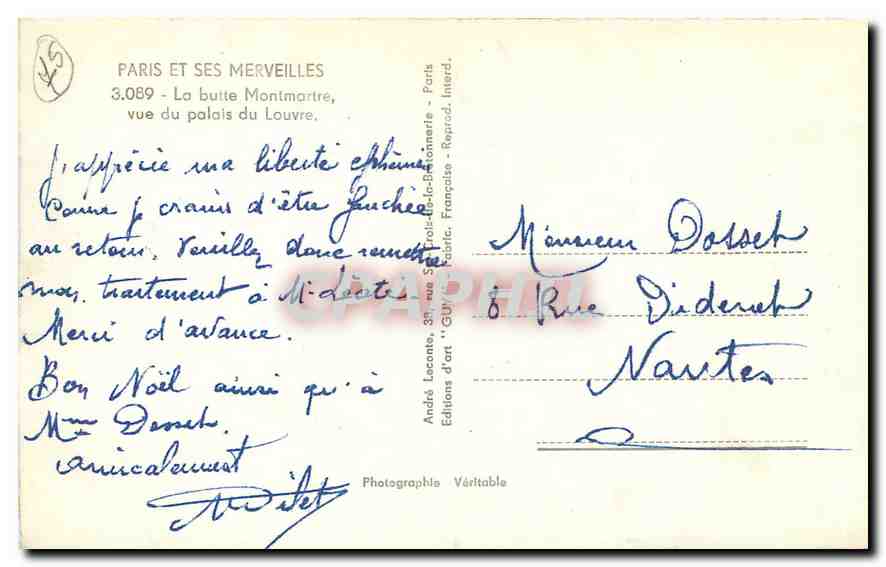 PARIS ET SES MERVEILLES
3.089 - La butte Montmartre,
vue du palais du Louvre.
J'apprécie ma liberté éphémère
Comme je crains d'être fauchée
au retour, Veuillez donc remettre
mon traitement à Mr
Merci d'avance.
Bon Noël ainsi qu'à
Mme Dosset.
Amicalement
André Leconte, 38, rue Ste-Croix-de-la-Bretonnerie - Paris
Editions d'art "GUY" - Fabric. Française - Reprod. Interd.
Photographie Véritable
Monsieur Dosset
8 Rue Diderot
Nantes
CPAPHIL